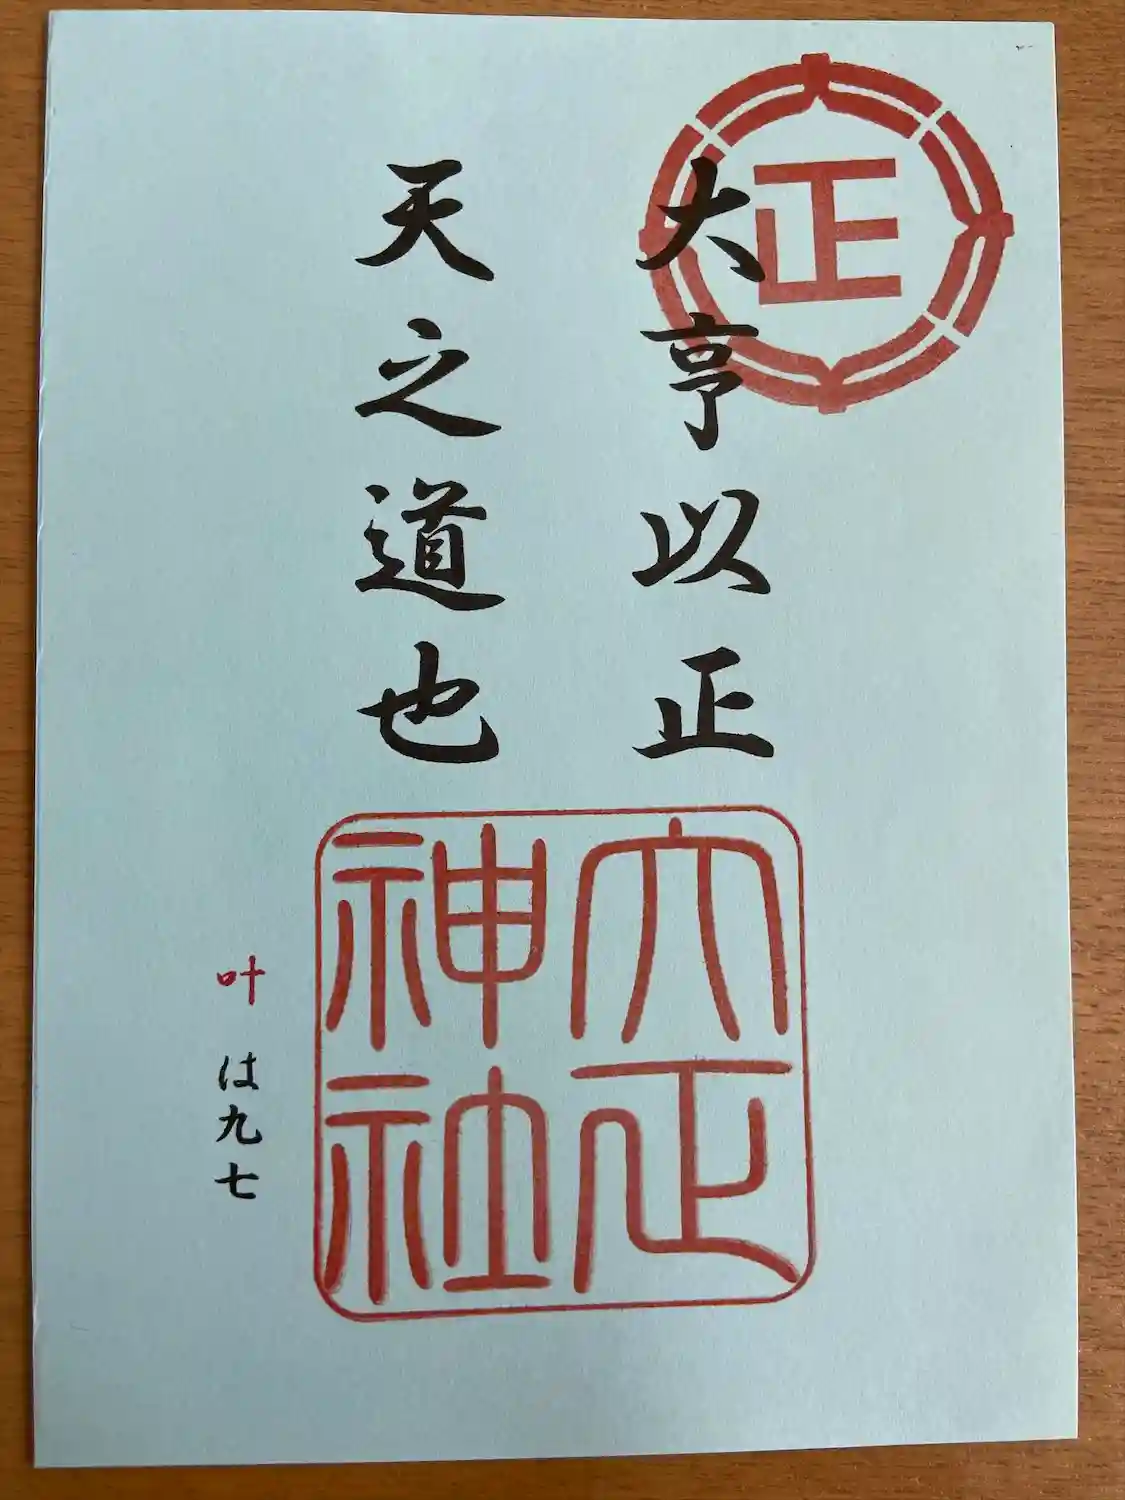 正
大亨以正
天之道也
大正
神社
叶 は九七